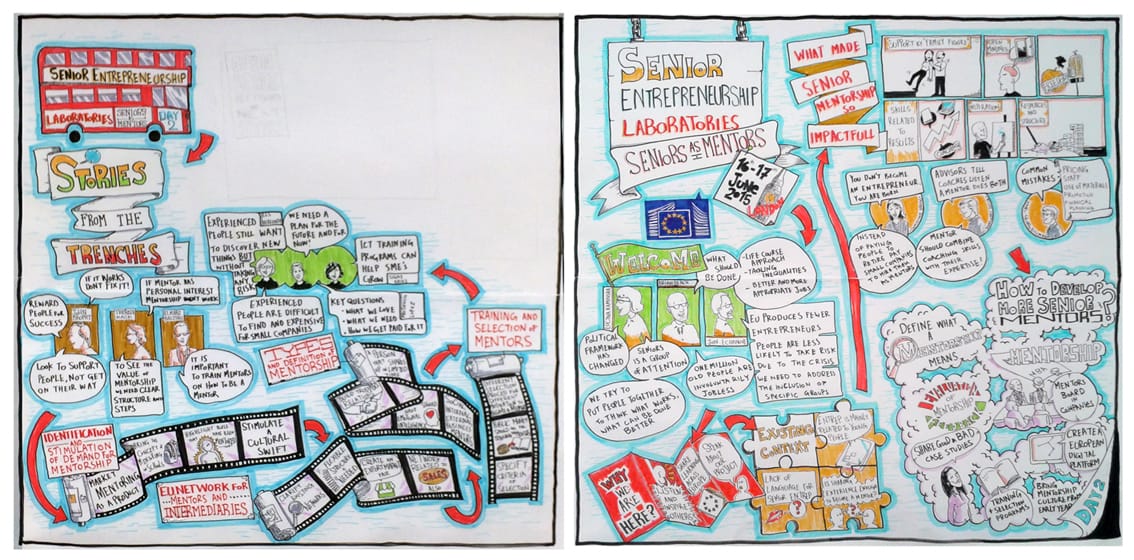 SENIOR ENTREPRENEURSHIP
LABORATORIES
SENIORS
AS MENTORS
DAY
2
STORIES
FROM THE
TRENCHES
IF IT WORKS
DON'T FIX IT!
IF MENTOR HAS
PERSONAL INTEREST
MENTORSHIP WON'T WORK
REWARD
PEOPLE FOR
SUCCESS
LOOK TO SUPPORT
PEOPLE, NOT GET
ON THEIR WAY
TO SEE THE
VALUE OF
MENTORSHIP
WE NEED CLEAR
STRUCTURE AND
STEPS
IT IS
IMPORTANT
TO TRAIN MENTORS
ON HOW TO BE A
MENTOR
EXPERIENCED
PEOPLE STILL WANT
TO DISCOVER NEW
THINGS BUT
WITHOUT
TAKING
ANY
RISK
WE NEED A
PLAN FOR THE
FUTURE AND FOR
NOW!
ICT TRAINING
PROGRAMS CAN
HELP SME'S
GROW
EXPERIENCED
PEOPLE ARE DIFFICULT
TO FIND AND EXPENSIVE
FOR SMALL COMPANIES
KEY QUESTIONS
- WHAT WE LOVE
- WHAT WE NEED
- HOW WE GET PAID FOR IT
TYPES
AND DEFINITION OF
MENTORSHIP
TRAINING AND
SELECTION OF
MENTORS
IDENTIFICATION
AND
STIMULATION OF
DEMAND FOR
MENTORSHIP
MAKE
MENTORING
A PRODUCT
STIMULATE
A CULTURAL
SWIFT
EU NETWORK FOR
MENTORS AND
INTERMEDIARIES
SALES
SENIOR
ENTREPRENEURSHIP
LABORATORIES
SENIORS AS MENTORS
16-17
JUNE
2015
LONDON
WHAT MADE
SENIOR
MENTORSHIP
SO
IMPACTFULL
SUPPORT BY FAMILY FIGURE
OPEN
MINDNES
SKILLS
RELATED TO
RESULTS
INSPIRATION
RESOURCES
AND
STRUCTURE
YOU DON'T BECOME
AN ENTREPRENEUR
YOU ARE BORN
ADVISORS TELL
COACHES LISTEN
A MENTOR DOES BOTH
COMMON
MISTAKES
PRICING
STAFF
USE OF MATERIALS
PROMOTION
FINANCIAL PLANNING
INSTEAD
OF PAYING
PEOPLE TO
RETIRE PAY
SMALL COMPANIES
TO HIRE THEM
AS MENTORS
MENTOR
SHOULD COMBINE
COACHING SKILLS
WITH THEIR
EXPERTISE!
WELCOME
WHAT
SHOULD
BE DONE
- LIFE COURSE
APPROACH
- TAOLING
INEQUALITIES
- BETTER AND MORE
APPROPRIATE JOBS
POLITICAL
FRAMEWORK
HAS
CHANGED
SENIORS
AS A GROUP
OF ATTENTION
ONE MILLION
OLD PEOPLE ARE
INVOLUNTARILY
JOBLESS
EU PRODUCES FEWER
ENTREPRENEURS
PEOPLE ARE LESS
LIKELY TO TAKE RISK
DUE TO THE CRISIS
WE NEED TO ADDRESS
THE INCLUSION OF
SPECIFIC GROUPS
WE TRY TO
PUT PEOPLE TOGETHER
TO THINK WHAT WORKS,
WHAT CAN BE DONE
BETTER
WHY
WE ARE
HERE?
LISTEN
AND
INSPIRE
OTHERS
EXISTING
CONTEXT
LACK OF
LANGUAGE FOR
SENIOR ENTREP.
HOW TO DEVELOP
MORE SENIOR
MENTORS?
DEFINE WHAT
MENTORSHIP
MEANS
MENTORSHIP
MENTORS
BOARD IN
COMPANIES
SHARE GOOD & BAD
CASE STUDIES
CREATE A
EUROPEAN
DIGITAL
PLATFORM
TRAINING
+ SELECTION
PROGRAMS
BRING
MENTORSHIP
CULTURE FROM
EARLY YEARS
DAY 2